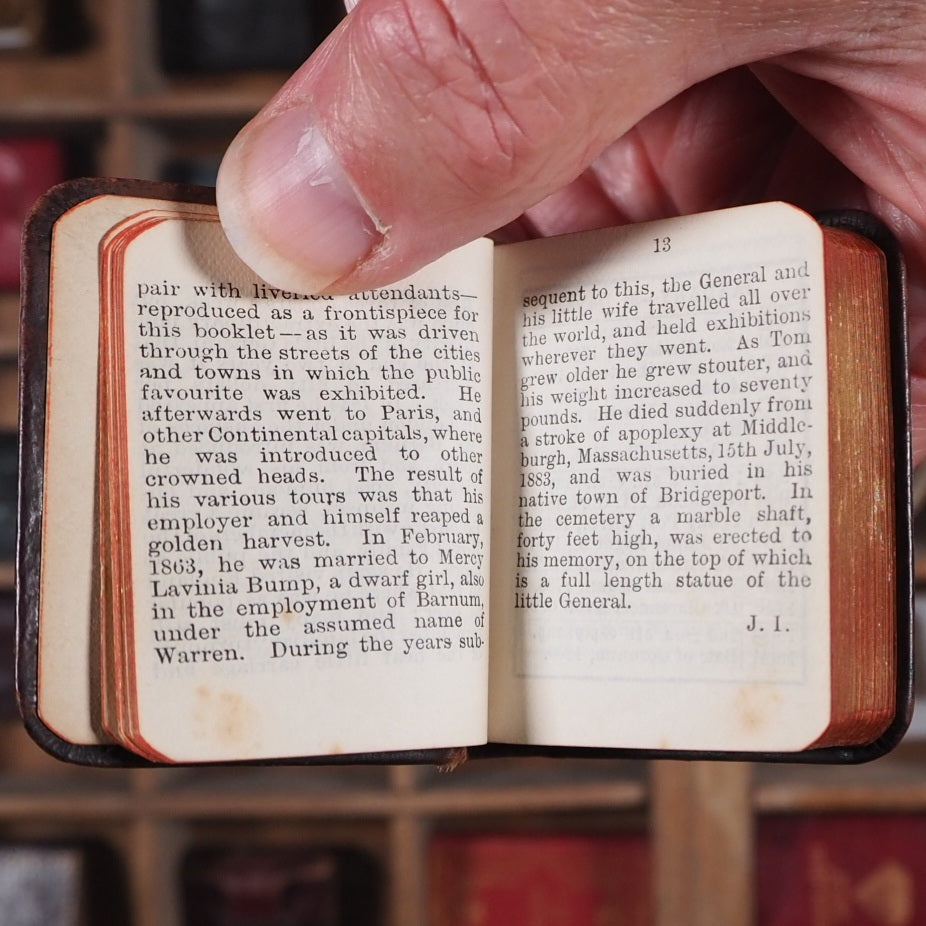 pair with liveried attendants—
reproduced as a frontispiece for
this booklet—as it was driven
through the streets of the cities
and towns in which the public
favourite was exhibited. He
afterwards went to Paris, and
other Continental capitals, where
he was introduced to other
crowned heads. The result of
his various tours was that his
employer and himself reaped a
golden harvest. In February,
1863, he was married to Mercy
Lavinia Bump, a dwarf girl, also
in the employment of Barnum,
under the assumed name of
Warren. During the years sub-
13
sequent to this, the General and
his little wife travelled all over
the world, and held exhibitions
wherever they went. As Tom
grew older he grew stouter, and
his weight increased to seventy
pounds. He died suddenly from
a stroke of apoplexy at Middle-
burgh, Massachusetts, 15th July,
1883, and was buried in his
native town of Bridgeport. In
the cemetery a marble shaft,
forty feet high, was erected to
his memory, on the top of which
is a full length statue of the
little General.
J. I.